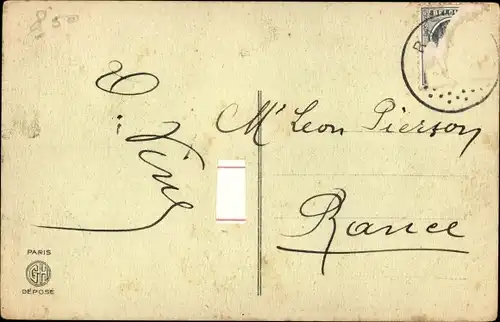 8 50
BELGI
R
Mr Leon Pierson
Rance
PARIS
GH
DÉPOSÉ